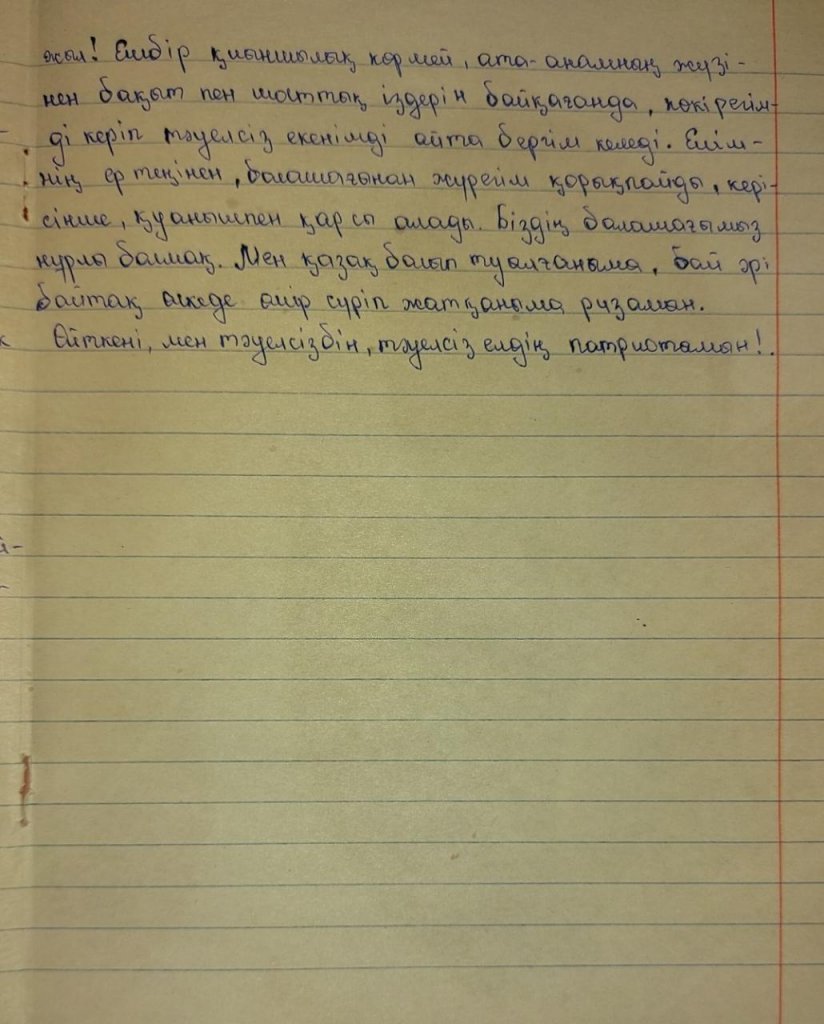 жыл! Ешбір қиыншылық көрмей, ата-анамның жүзі-
нен бақыт пен шаттық іздерін байқағанда, көкірегім-
ді керіп тәуелсіз екенімді айта бергім келеді. Елім-
нің ертеңінен, болашағынан жүрегім қорықпайды, кері-
сінше, қуанышпен қарсы алады. Біздің болашағымыз
нұрлы болмақ. Мен қазақ болып туылғаныма, бай әрі
байтақ өлкеде өмір сүріп жатқаныма ризамын.
Өйткені, мен тәуелсізбін, тәуелсіз елдің патриотымын!.